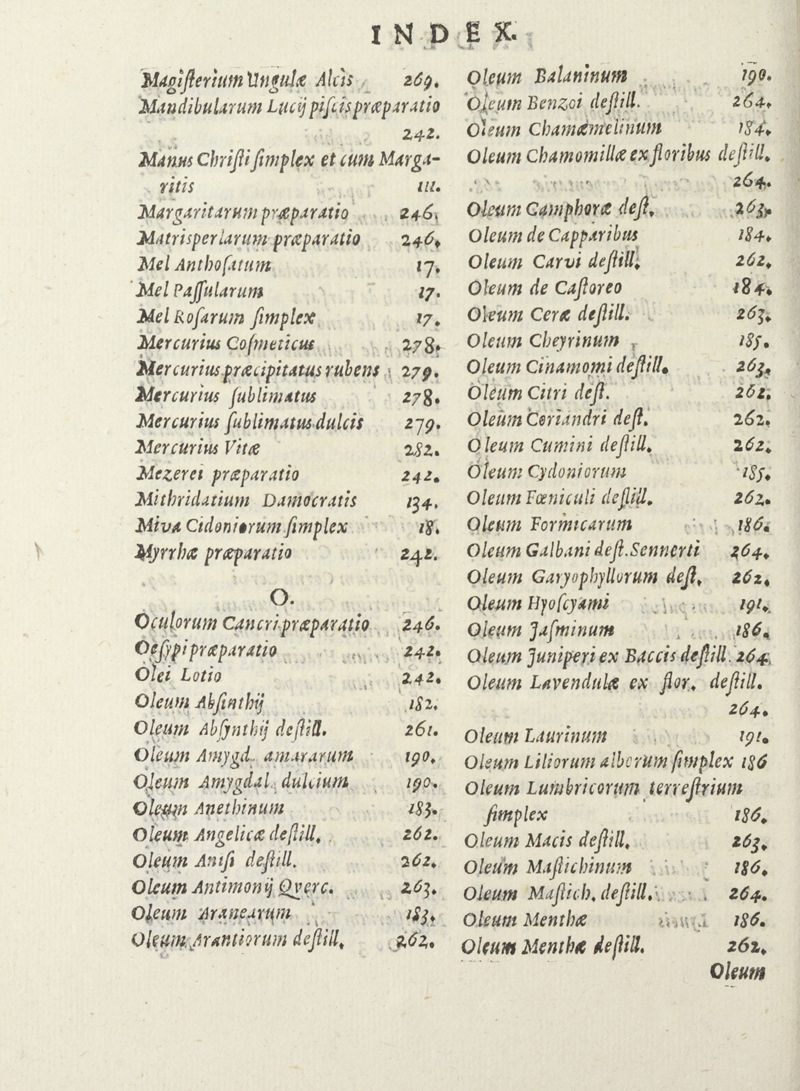 INDEX.
Magiſterium Ungulæ Alcis 269.
Mandibularum Lucij piſcis præparatio
242.
Manus Chriſti ſimplex et cum Marga-
ritis 111.
Margaritarum præparatio 246.
Matrisperlarum præparatio 246.
Mel Anthoſatum 17.
Mel Paſſularum 17.
Mel Roſarum ſimplex 17.
Mercurius Coſmeticus 278.
Mercurius præcipitatus rubens 279.
Mercurius ſublimatus 278.
Mercurius ſublimatus dulcis 279.
Mercurius Vitæ 282.
Mezerei præparatio 242.
Mithridatium Damocratis 134.
Miva Cidoniorum ſimplex 18.
Myrrhæ præparatio 242.
O.
Oculorum Cancri præparatio 246.
Oeſypi præparatio 242.
Olei Lotio 242.
Oleum Abſinthij 182.
Oleum Abſynthij deſtill. 261.
Oleum Amygd. amararum 190.
Oleum Amygdal. dulcium 190.
Oleum Anethinum 183.
Oleum Angelicæ deſtill. 262.
Oleum Aniſi deſtill. 262.
Oleum Antimonij Qverc. 263.
Oleum Aranearum 183.
Oleum Arantiorum deſtill. 262.
Oleum Balaninum 190.
Oleum Benzoi deſtill. 264.
Oleum Chamæmelinum 184.
Oleum Chamomillæ ex floribus deſtill.
264.
Oleum Camphoræ deſt. 263.
Oleum de Capparibus 184.
Oleum Carvi deſtill. 262.
Oleum de Caſtoreo 184.
Oleum Ceræ deſtill. 263.
Oleum Cheyrinum 185.
Oleum Cinamomi deſtill. 263.
Oleum Citri deſt. 262.
Oleum Coriandri deſt. 262.
Oleum Cumini deſtill. 262.
Oleum Cydoniorum 185.
Oleum Fœniculi deſtill. 262.
Oleum Formicarum 186.
Oleum Galbani deſt. Sennerti 264.
Oleum Garyophyllorum deſt. 262.
Oleum Hyoſcyami 191.
Oleum Jaſminum 186.
Oleum Juniperi ex Baccis deſtill. 264.
Oleum Lavendulæ ex flor. deſtill.
264.
Oleum Laurinum 191.
Oleum Liliorum alborum ſimplex 186
Oleum Lumbricorum terreſtrium
ſimplex 186.
Oleum Macis deſtill. 263.
Oleum Maſtichinum 186.
Oleum Maſtich. deſtill. 264.
Oleum Menthæ 186.
Oleum Menthæ deſtill. 262.
Oleum